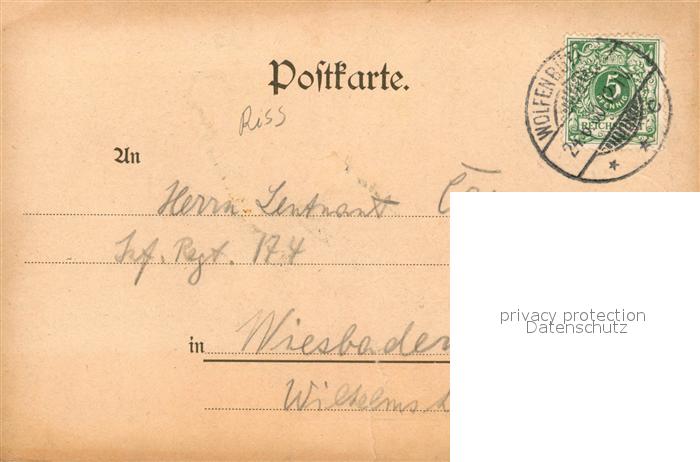 Postkarte.
Riss
An
Herrn Leutnant
Inf. Regt. 174
in Wiesbaden
Wilhelmst
WOLFENBÜ
5
PFENNIG
REICHSPOST
privacy protection
Datenschutz